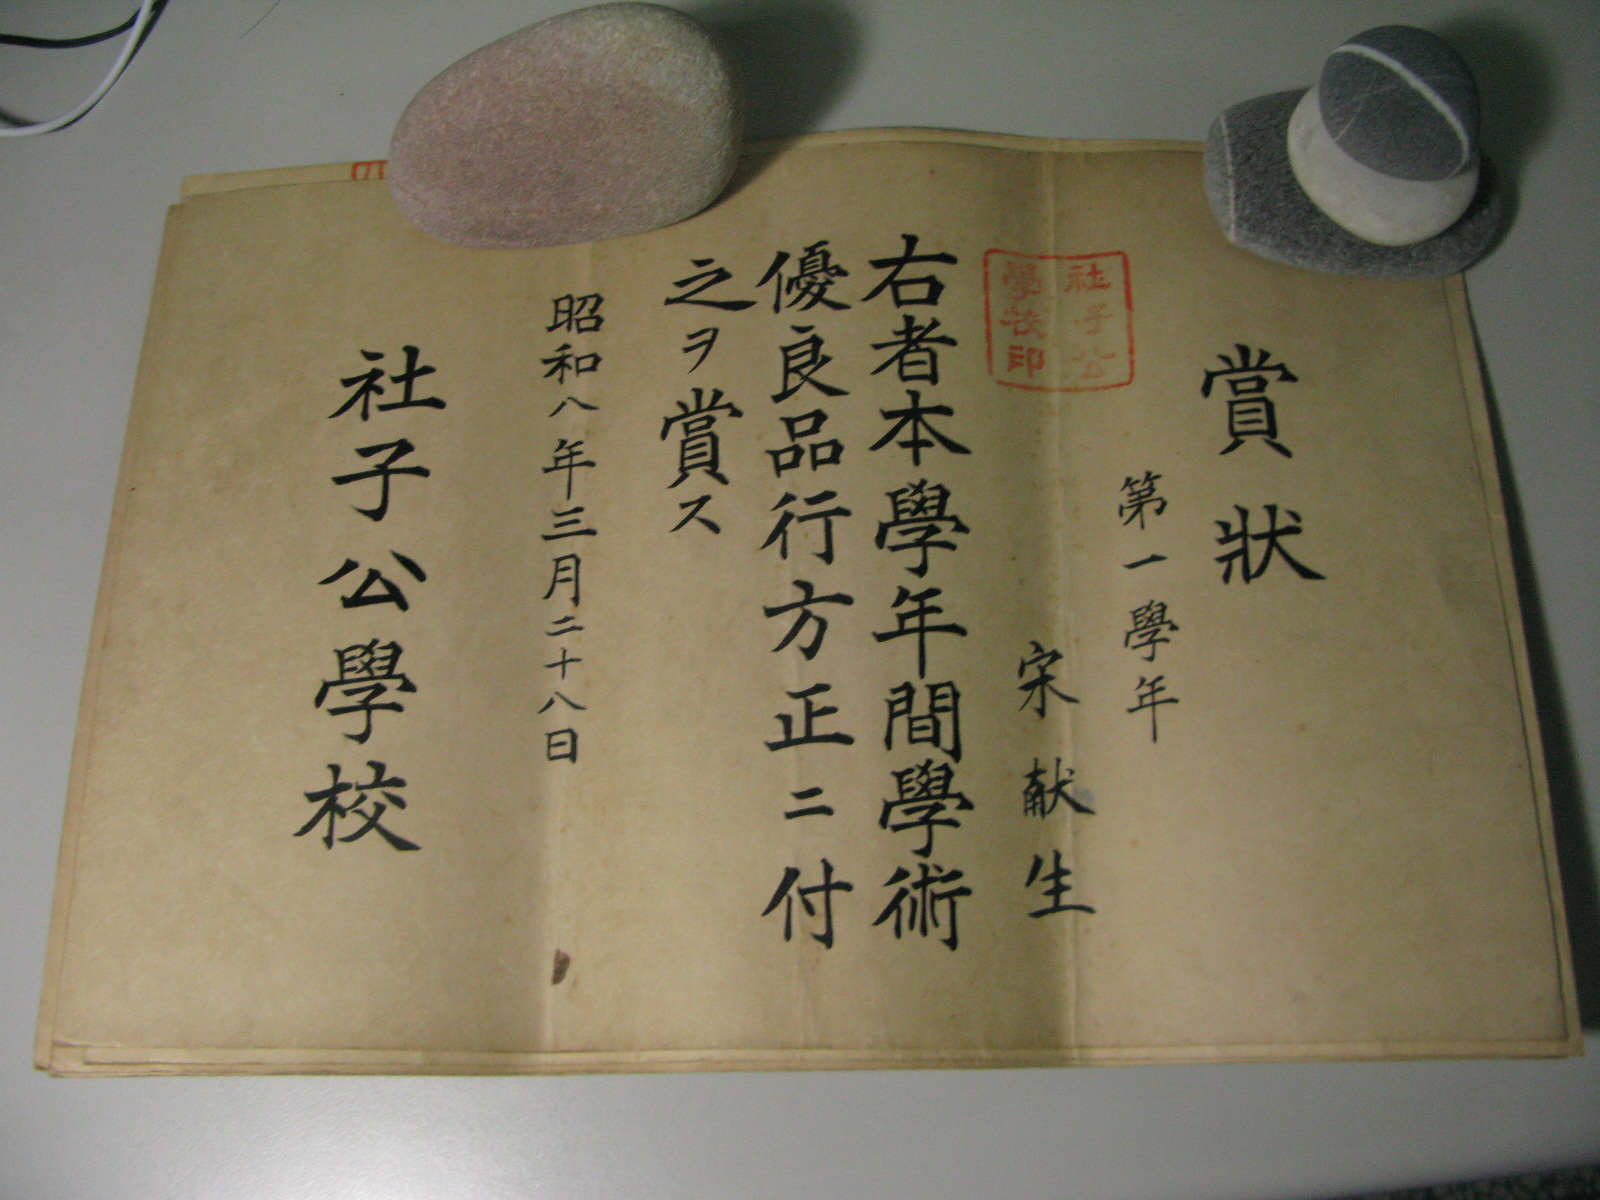 賞狀
第一學年
宋献生
社子公
學校印
右者本學年間學術
優良品行方正ニ付
之ヲ賞ス
昭和八年三月二十八日
社子公學校